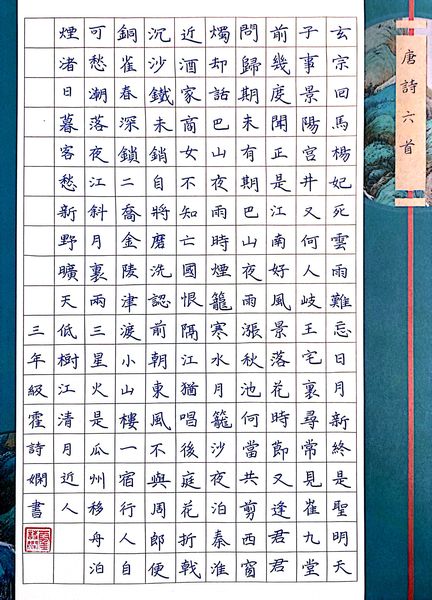 唐詩六首
玄宗回馬楊妃死雲雨難忘日月新終是聖明天
子事景陽宮井又何人岐王宅裏尋常見崔九堂
前幾度聞正是江南好風景落花時節又逢君君
問歸期未有期巴山夜雨漲秋池何當共剪西窗
燭却話巴山夜雨時煙籠寒水月籠沙夜泊秦淮
近酒家商女不知亡國恨隔江猶唱後庭花折戟
沉沙鐵未銷自將磨洗認前朝東風不與周郎便
銅雀春深鎖二喬金陵津渡小山樓一宿行人自
可愁潮落夜江斜月裏兩三星火是瓜州移舟泊
煙渚日暮客愁新野曠天低樹江清月近人
三年級霍詩嫻書